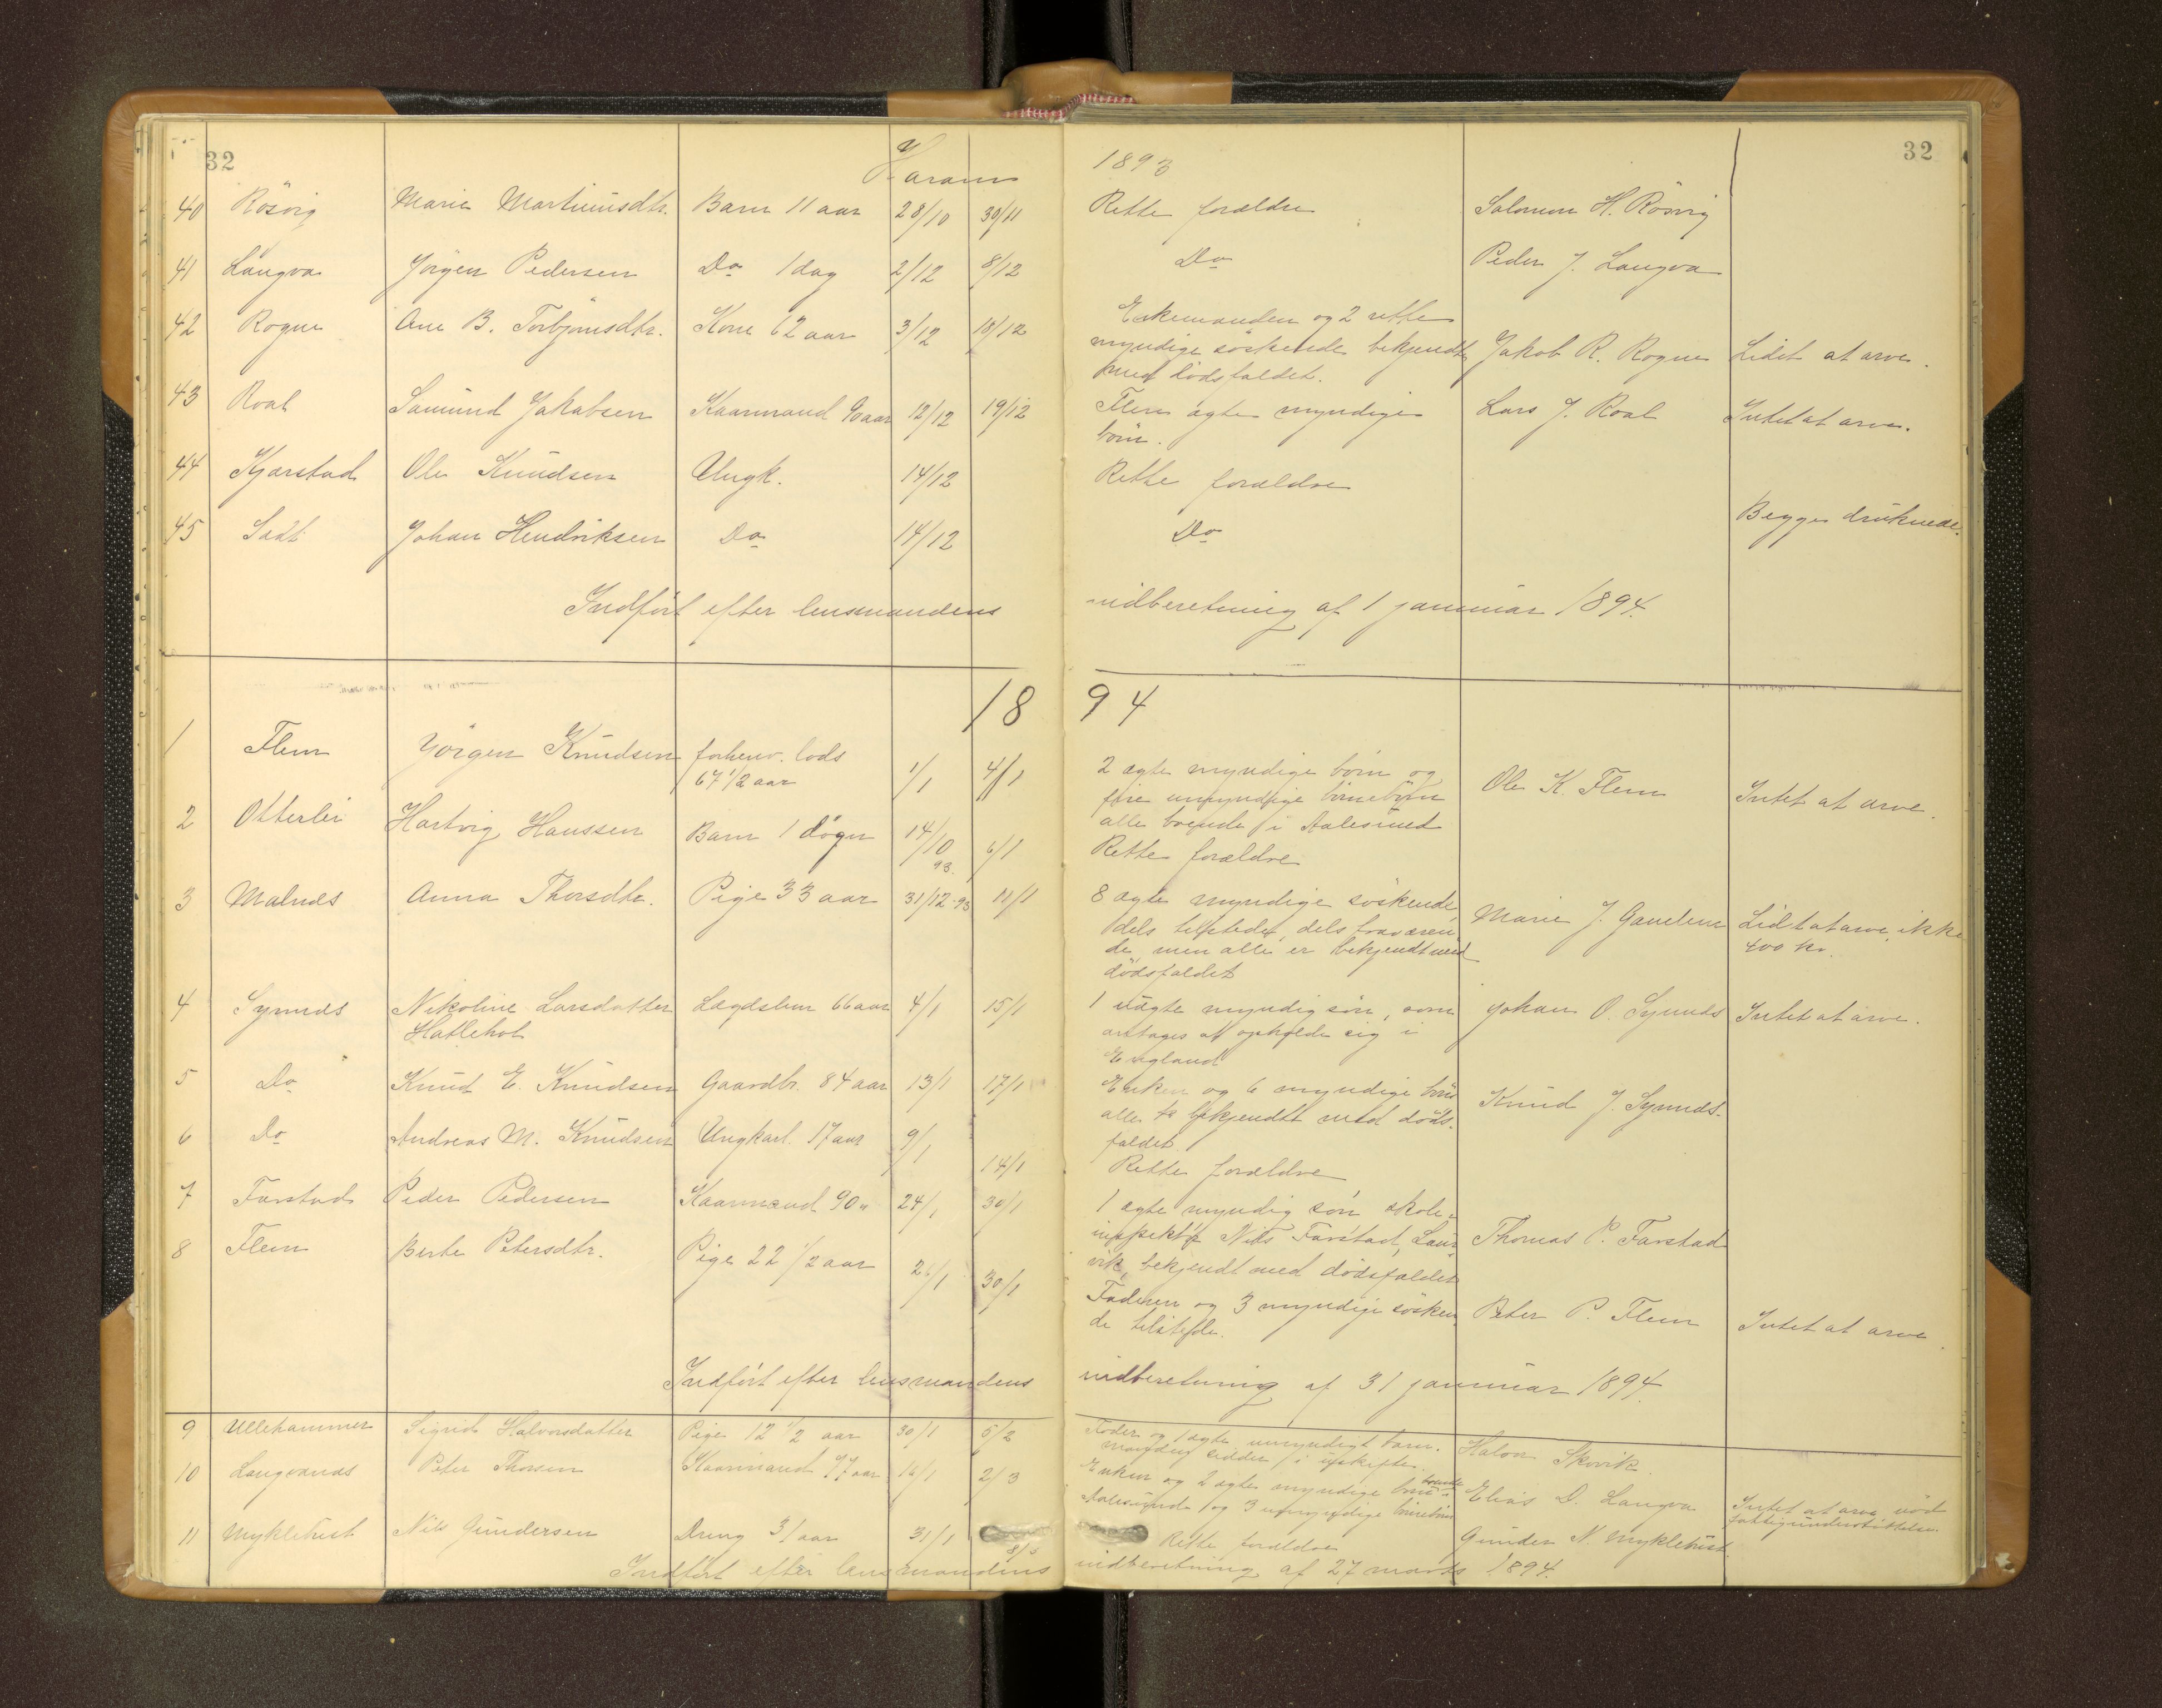 32
Haram
1893
32
40 Rösvig Marie Martinusdtr. Barn 11 aar 28/10 30/11 Rette forældre Salomon H. Rösvig
41 Langva Jörgen Pedersen Do 1 dag 2/12 8/12 Do Peder J. Langva
42 Rogne Ane B. Torbjörnsdtr. Kone 62 aar 3/12 10/12 Enkemanden og 2 rette
myndige söskende bekjendt Jakob R. Rogne Lidet at arve.
med dödsfaldet.
43 Roal Samund Jakobsen Kaarmand 90 aar 12/12 19/12 Flere ægte myndige Lars J. Roal Intet at arve.
börn.
44 Kjærstad Ole Knudsen Ungk. 14/12 Rette forældre
45 Johan Hendriksen Do 14/12 Do Begge druknede.
Indfört efter lensmandens indberetning af 1 januar 1894.
1894
1 Flem Jörgen Knudsen forhenv. lods 1/1 4/1 2 ægte myndige börn og Ole K. Flem Intet at arve.
67 1/2 aar fire umyndige börnebörn
alle boende i Aalesund
2 Otterlei Hartvig Hanssen Barn 1 dögn 14/10 93. 6/1 Rette forældre
3 Malnes Anna Thorsdtr. Pige 33 aar 31/12-93 11/1 8 ægte myndige söskende, Marie J. Gamlem Lidt at arve, ikke
dels tilstede, dels fraværen 400 kr.
de, men alle er bekjendt med
dödsfaldet
4 Synnes Nikoline Larsdatter Lægdslem 66 aar 4/1 15/1 1 uægte myndig sön, som Johan O. Synnes Intet at arve.
Hatlehol antages at opholde sig i
England
5 Do Knud E. Knudsen Gaardbr. 84 aar 13/1 17/1 Enken og 6 myndige börn Knud J. Synnes.
alle bekjendt med döds-
faldet.
6 Do Andreas M. Knudsen Ungkarl. 17 aar 9/1 14/1 Rette forældre
7 Farstad Peder Pedersen Kaarmand 90 " 24/1 30/1 1 ægte myndig sön skole-
inspektör Nils Farstad, Laur- Thomas P. Farstad
vik, bekjendt med dödsfaldet
8 Flem Berte Petersdtr. Pige 22 1/2 aar 26/1 30/1 Faderen og 3 myndige sösken Peter P. Flem Intet at arve.
de tilstede.
Indfört efter lensmandens indberetning af 31 januar 1894.
9 Ullehammer Sigrid Halvorsdatter Pige 12 1/2 aar 30/1 5/2 Fader og 1 ægte umyndigt barn. Halvor Skovik.
manden sidder i uskifte.
10 Langvanas Peter Thorsen Kaarmand 77 aar 16/1 2/3 Enken og 2 ægte myndige börn boende Elias D. Langva Intet at arve, nöd
Aalesund og 3 umyndige börnebörn fattigunderstöttelse.
11 Myklebust Nils Gundersen Dreng 3/ aar 31/1 8/3 Rette forældre Gunder N. Myklebust
Indfört efter lensmandens indberetning af 27 marts 1894.